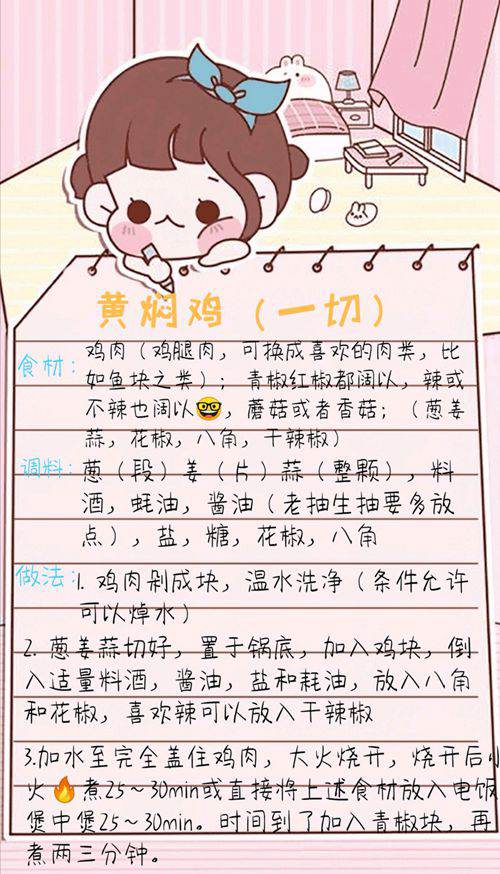 黄焖鸡（一切）
食材：鸡肉（鸡腿肉，可换成喜欢的肉类，比
如鱼块之类）；青椒红椒都阔以，辣或
不辣也阔以🤓，蘑菇或者香菇；（葱姜
蒜，花椒，八角，干辣椒）
调料：葱（段）姜（片）蒜（整颗），料
酒，蚝油，酱油（老抽生抽要多放
点），盐，糖，花椒，八角
做法：1. 鸡肉剁成块，温水洗净（条件允许
可以焯水）
2. 葱姜蒜切好，置于锅底，加入鸡块，倒
入适量料酒，酱油，盐和耗油，放入八角
和花椒，喜欢辣可以放入干辣椒
3.加水至完全盖住鸡肉，大火烧开，烧开后小
火🔥煮25～30min或直接将上述食材放入电饭
煲中煲25～30min。时间到了加入青椒块，再
煮两三分钟。